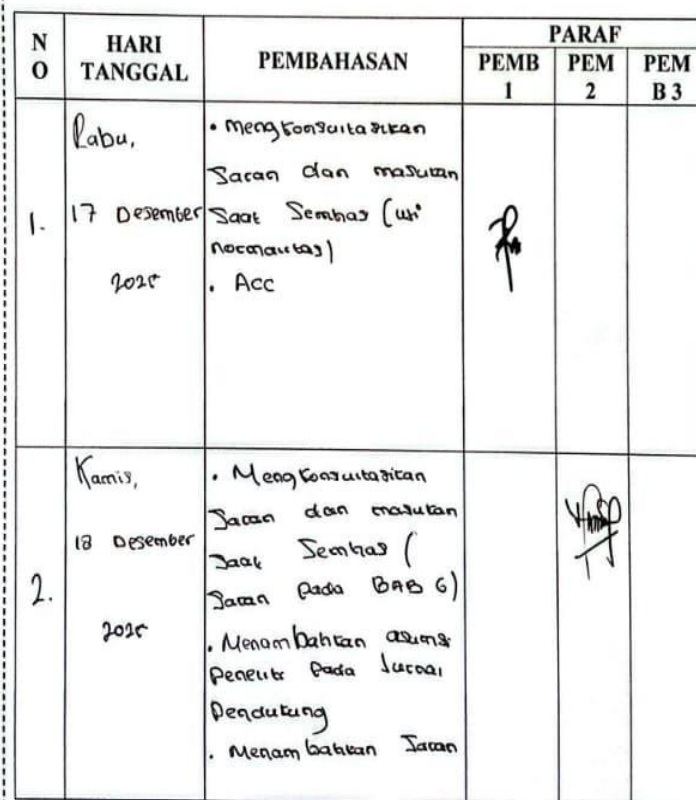 N O
HARI TANGGAL
PEMBAHASAN
PARAF
PEMB 1
PEM 2
PEM B 3
1.
Rabu,
17 Desember
2025
• Mengkonsultasikan
Saran dan masukan
Saat Semhas (uji
normalitas)
• Acc
2.
Kamis,
18 Desember
2025
• Mengkonsultasikan
Saran dan masukan
Saat Semhas (
Saran pada BAB 6)
• Menambahkan asumsi
Peneliti pada Jurnal
Pendukung
• Menambahkan Saran